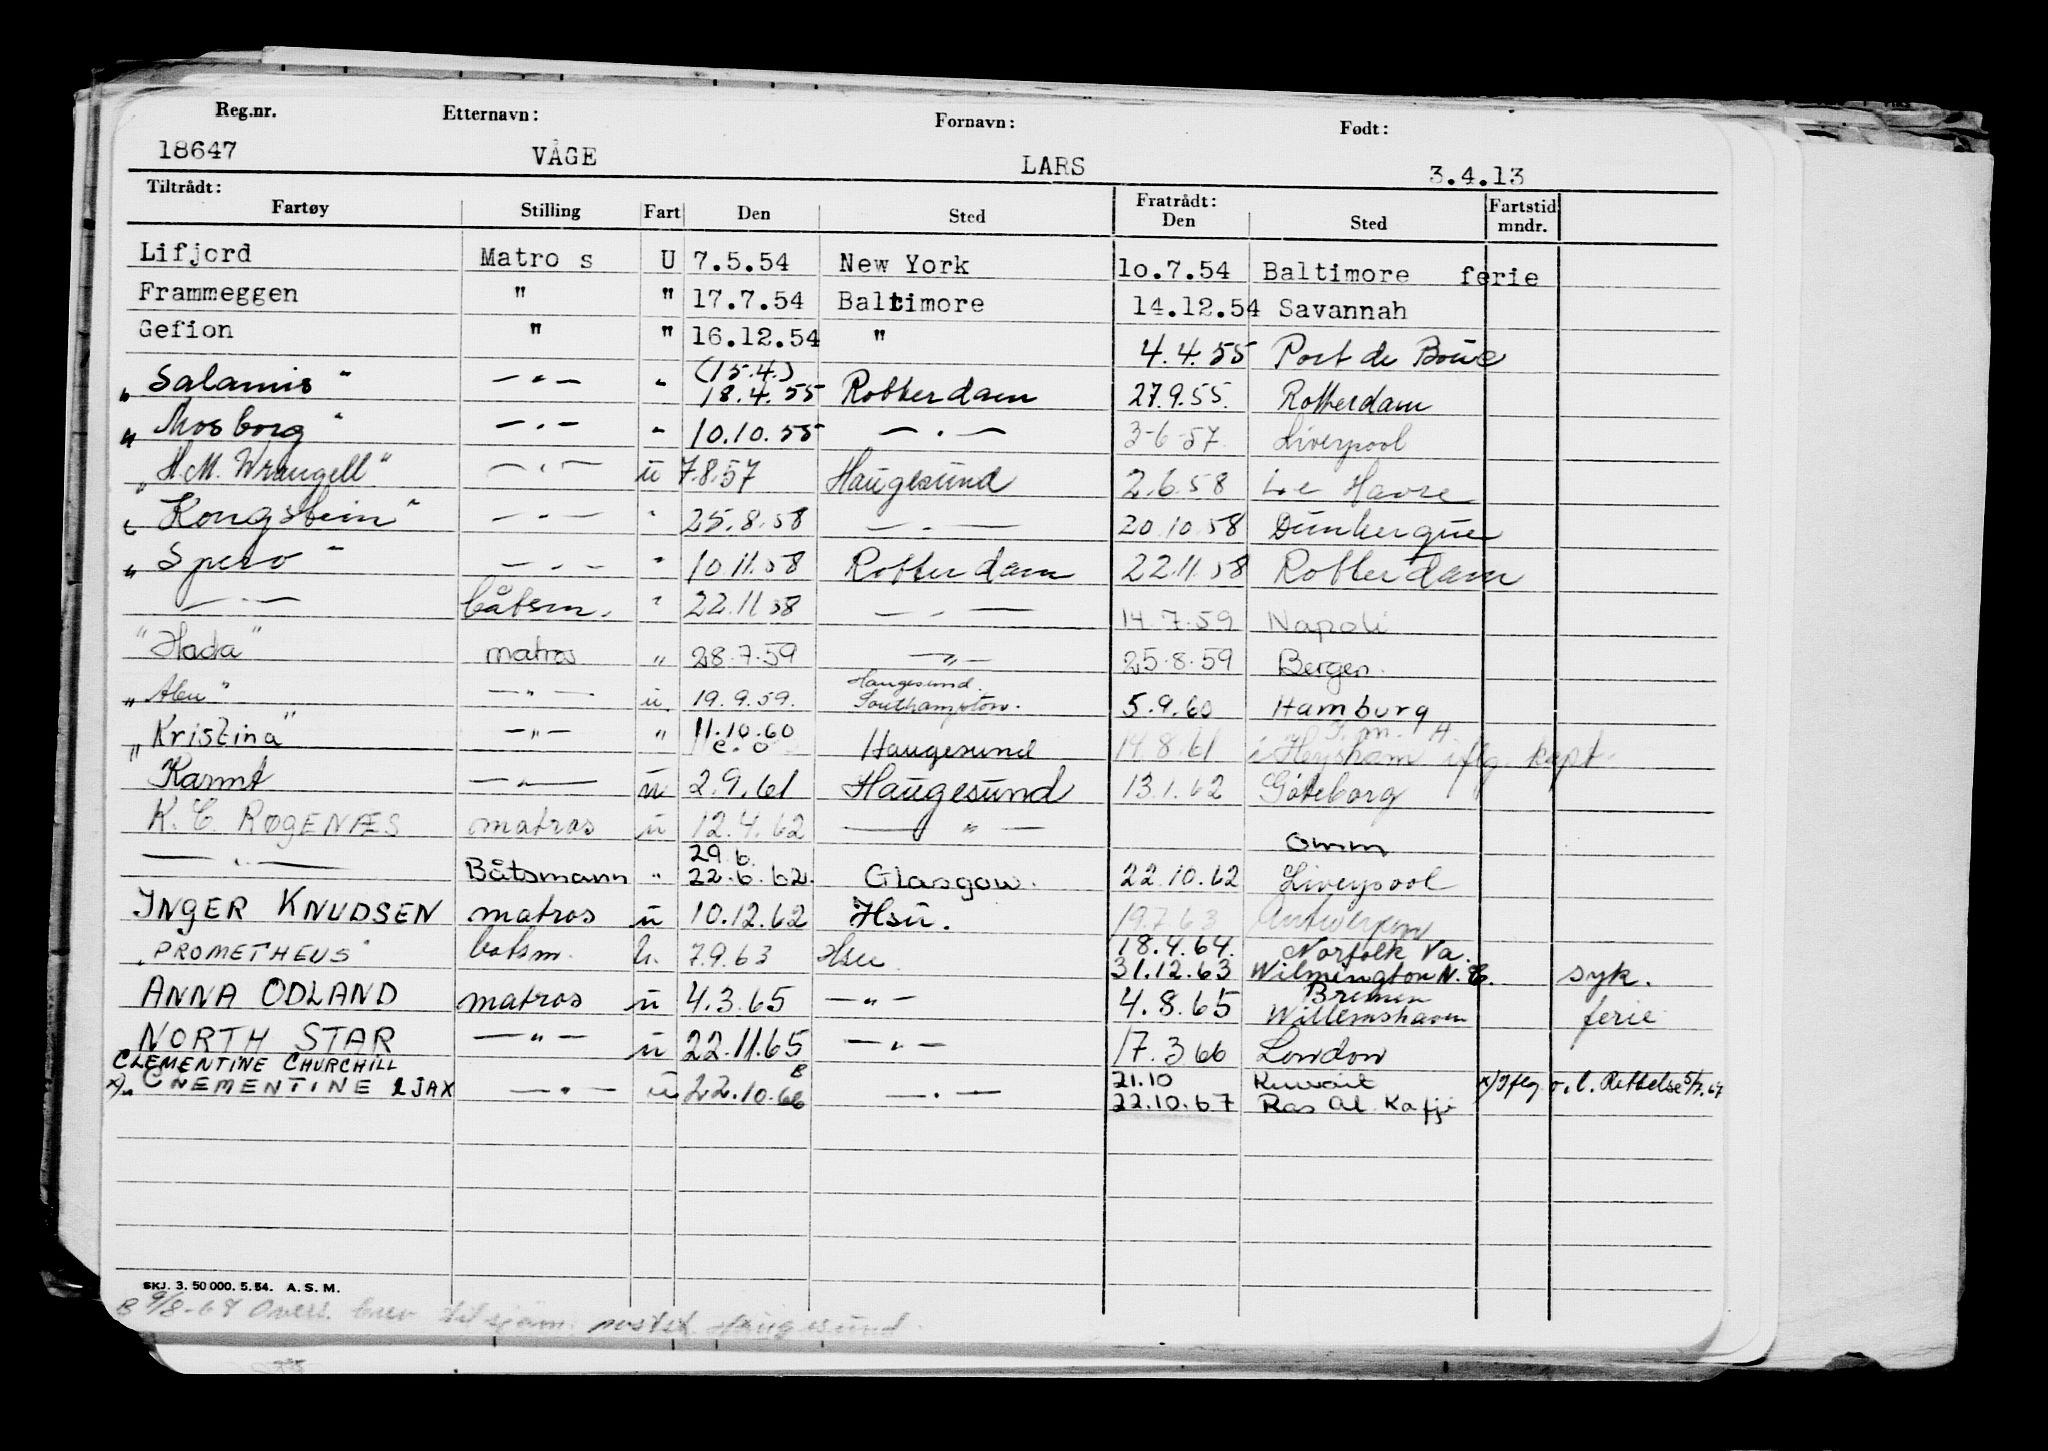 Reg.nr. Etternavn: Fornavn: Født:
18647 VÅGE LARS 3.4.13
Tiltrådt: Fratrådt:
Fartøy Stilling Fart Den Sted Den Sted Fartstid mndr.
Lifjord Matro s U 7.5.54 New York 1o.7.54 Baltimore ferie
Frammeggen " " 17.7.54 Baltimore 14.12.54 Savannah
Gefion " " 16.12.54 " 4.4.55 Port de Bouc
(15.4.)
"Salamis" — " — " 18.4.55 Rotterdam 27.9.55. Rotterdam
"Mosborg" — " — " 10.10.55 — " — 3-6-57. Liverpool
"H.M. Wrangell" — " — u 7.8.57 Haugesund 2.6.58 Le Havre
"Kongstein" — " — " 25.8.58 — " — 20.10.58 Dunkerque
"Spero" — " — " 10.11.58 Rotterdam 22.11.58 Rotterdam
— " — båtsm. " 22.11.58 — " — 14.7.59 Napoli
"Hada" matros " 28.7.59 — " — 25.8.59 Bergen.
Haugesund.
" — " — u. 19.9.59. Southampton. 5.9.60 Hamburg
"Kristina" — " — " 11.10.60 Haugesund 14.8.61 i Heysham iflg. kapt.
Karmt — " — u 2.9.61 Haugesund 13.1.62 Göteborg
K. C. ROGENÆS matros u 12.4.62 — " — omm
29.6.
— " — Båtsmann " 22.6.62. Glasgow. 22.10.62 Liverpool
INGER KNUDSEN matros u 10.12.62 Hsu. 19.7.63 Antwerpen
18.4.64. Norfolk Va.
"PROMETHEUS" batsm. u. 7.9.63 Hsu 31.12.63 Wilmington N.C. syk.
Bremen
ANNA ODLAND matros u 4.3.65 — " — 4.8.65 Willemshaven ferie
NORTH STAR — " — u 22.11.65 — " — 17.3 66 London
CLEMENTINE CHURCHILL
21.10 Kuwait x) Iflg o.l. Rettelse 5/7.67
x) " CLEMENTINE AJAX — " — u 22.10.66 — " — 22.10.67 Ras Al. Kafji
SKJ. 3. 50 000. 5. 54. A. S. M.
B 9/8-67 Overs. brev til sjøm. postst. Haugesund.